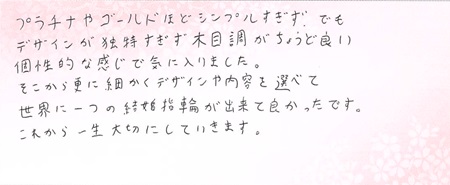 プラチナやゴールドほどシンプルすぎず、でも
デザインが独特すぎず木目調がちょうど良い
個性的な感じで気に入りました。
そこから更に細かくデザインや内容を選べて
世界に一つの結婚指輪が出来て良かったです。
これから一生大切にしていきます。